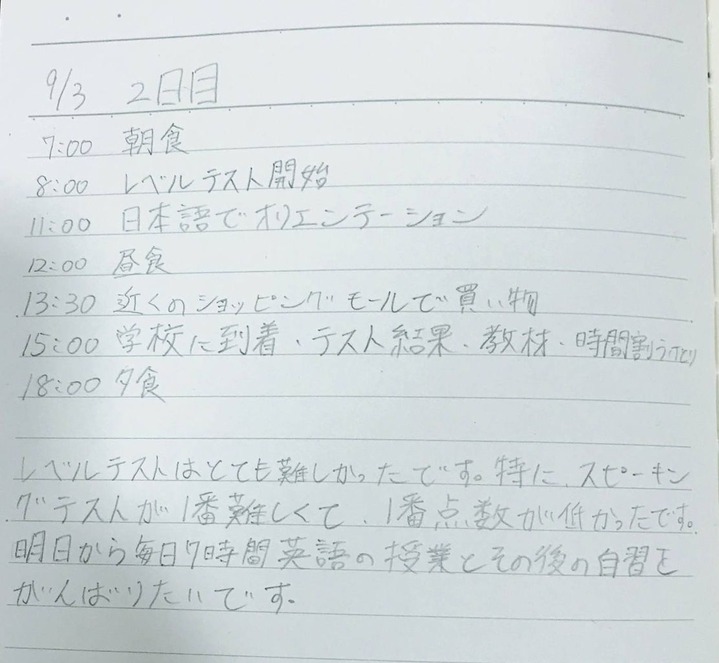 9/3 2日目
7:00 朝食
8:00 レベルテスト開始
11:00 日本語でオリエンテーション
12:00 昼食
13:30 近くのショッピングモールで買い物
15:00 学校に到着・テスト結果・教材・時間割うけとり
18:00 夕食
レベルテストはとても難しかったです。特に、スピーキン
グテストが1番難しくて、1番点数が低かったです。
明日から毎日7時間英語の授業とその後の自習を
がんばりたいです。